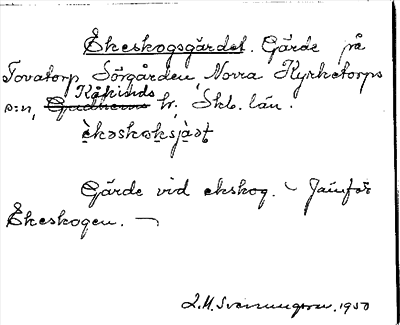 Ekeskogsgärdet. Gärde på
Tovatorp Sörgården, Norra Kyrketorps
Kåkinds
s:n, Gudhems hr, Skb. län.
èkəskɷksjàət
Gärde vid ekskog. – Jämför
Ekeskogen. –
1950